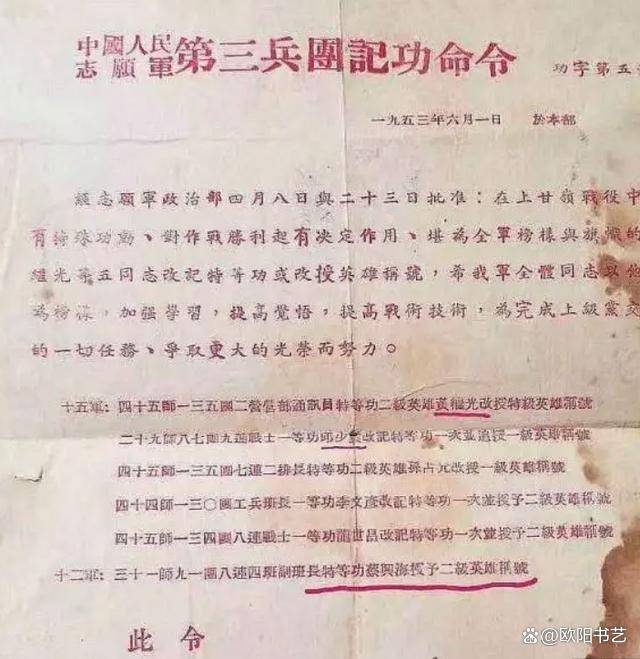 中國人民
志願軍 第三兵團記功命令
功字第五
一九五三年六月一日 於本部
經志願軍政治部四月八日與二十三日批准：在上甘嶺戰役中
有特殊功勳、對作戰勝利起有决定作用、堪為全軍榜樣與旗幟的
繼光等五同志改記特等功或改授英雄稱號，希我軍全體同志以他
為榜樣，加强學習，提高覺悟，提高戰術技術，為完成上級黨交
的一切任務、爭取更大的光榮而努力。
十五軍：四十五師一三五團二營營部通訊員特等功二級英雄黃繼光改授特級英雄稱號
二十九師八七團九連戰士一等功邱少雲改記特等功一次並追授一級英雄稱號
四十五師一三五團七連二排長特等功二級英雄孫占元改授一級英雄稱號
四十四師一三〇團工兵班長一等功李文彥改記特等功一次並授予二級英雄稱號
四十五師一三四團八連戰士一等功龍世昌改記特等功一次並授予二級英雄稱號
十二軍：三十一師九一團八連四班副班長特等功蔡興海授予二級英雄稱號
此令
@欧阳书艺